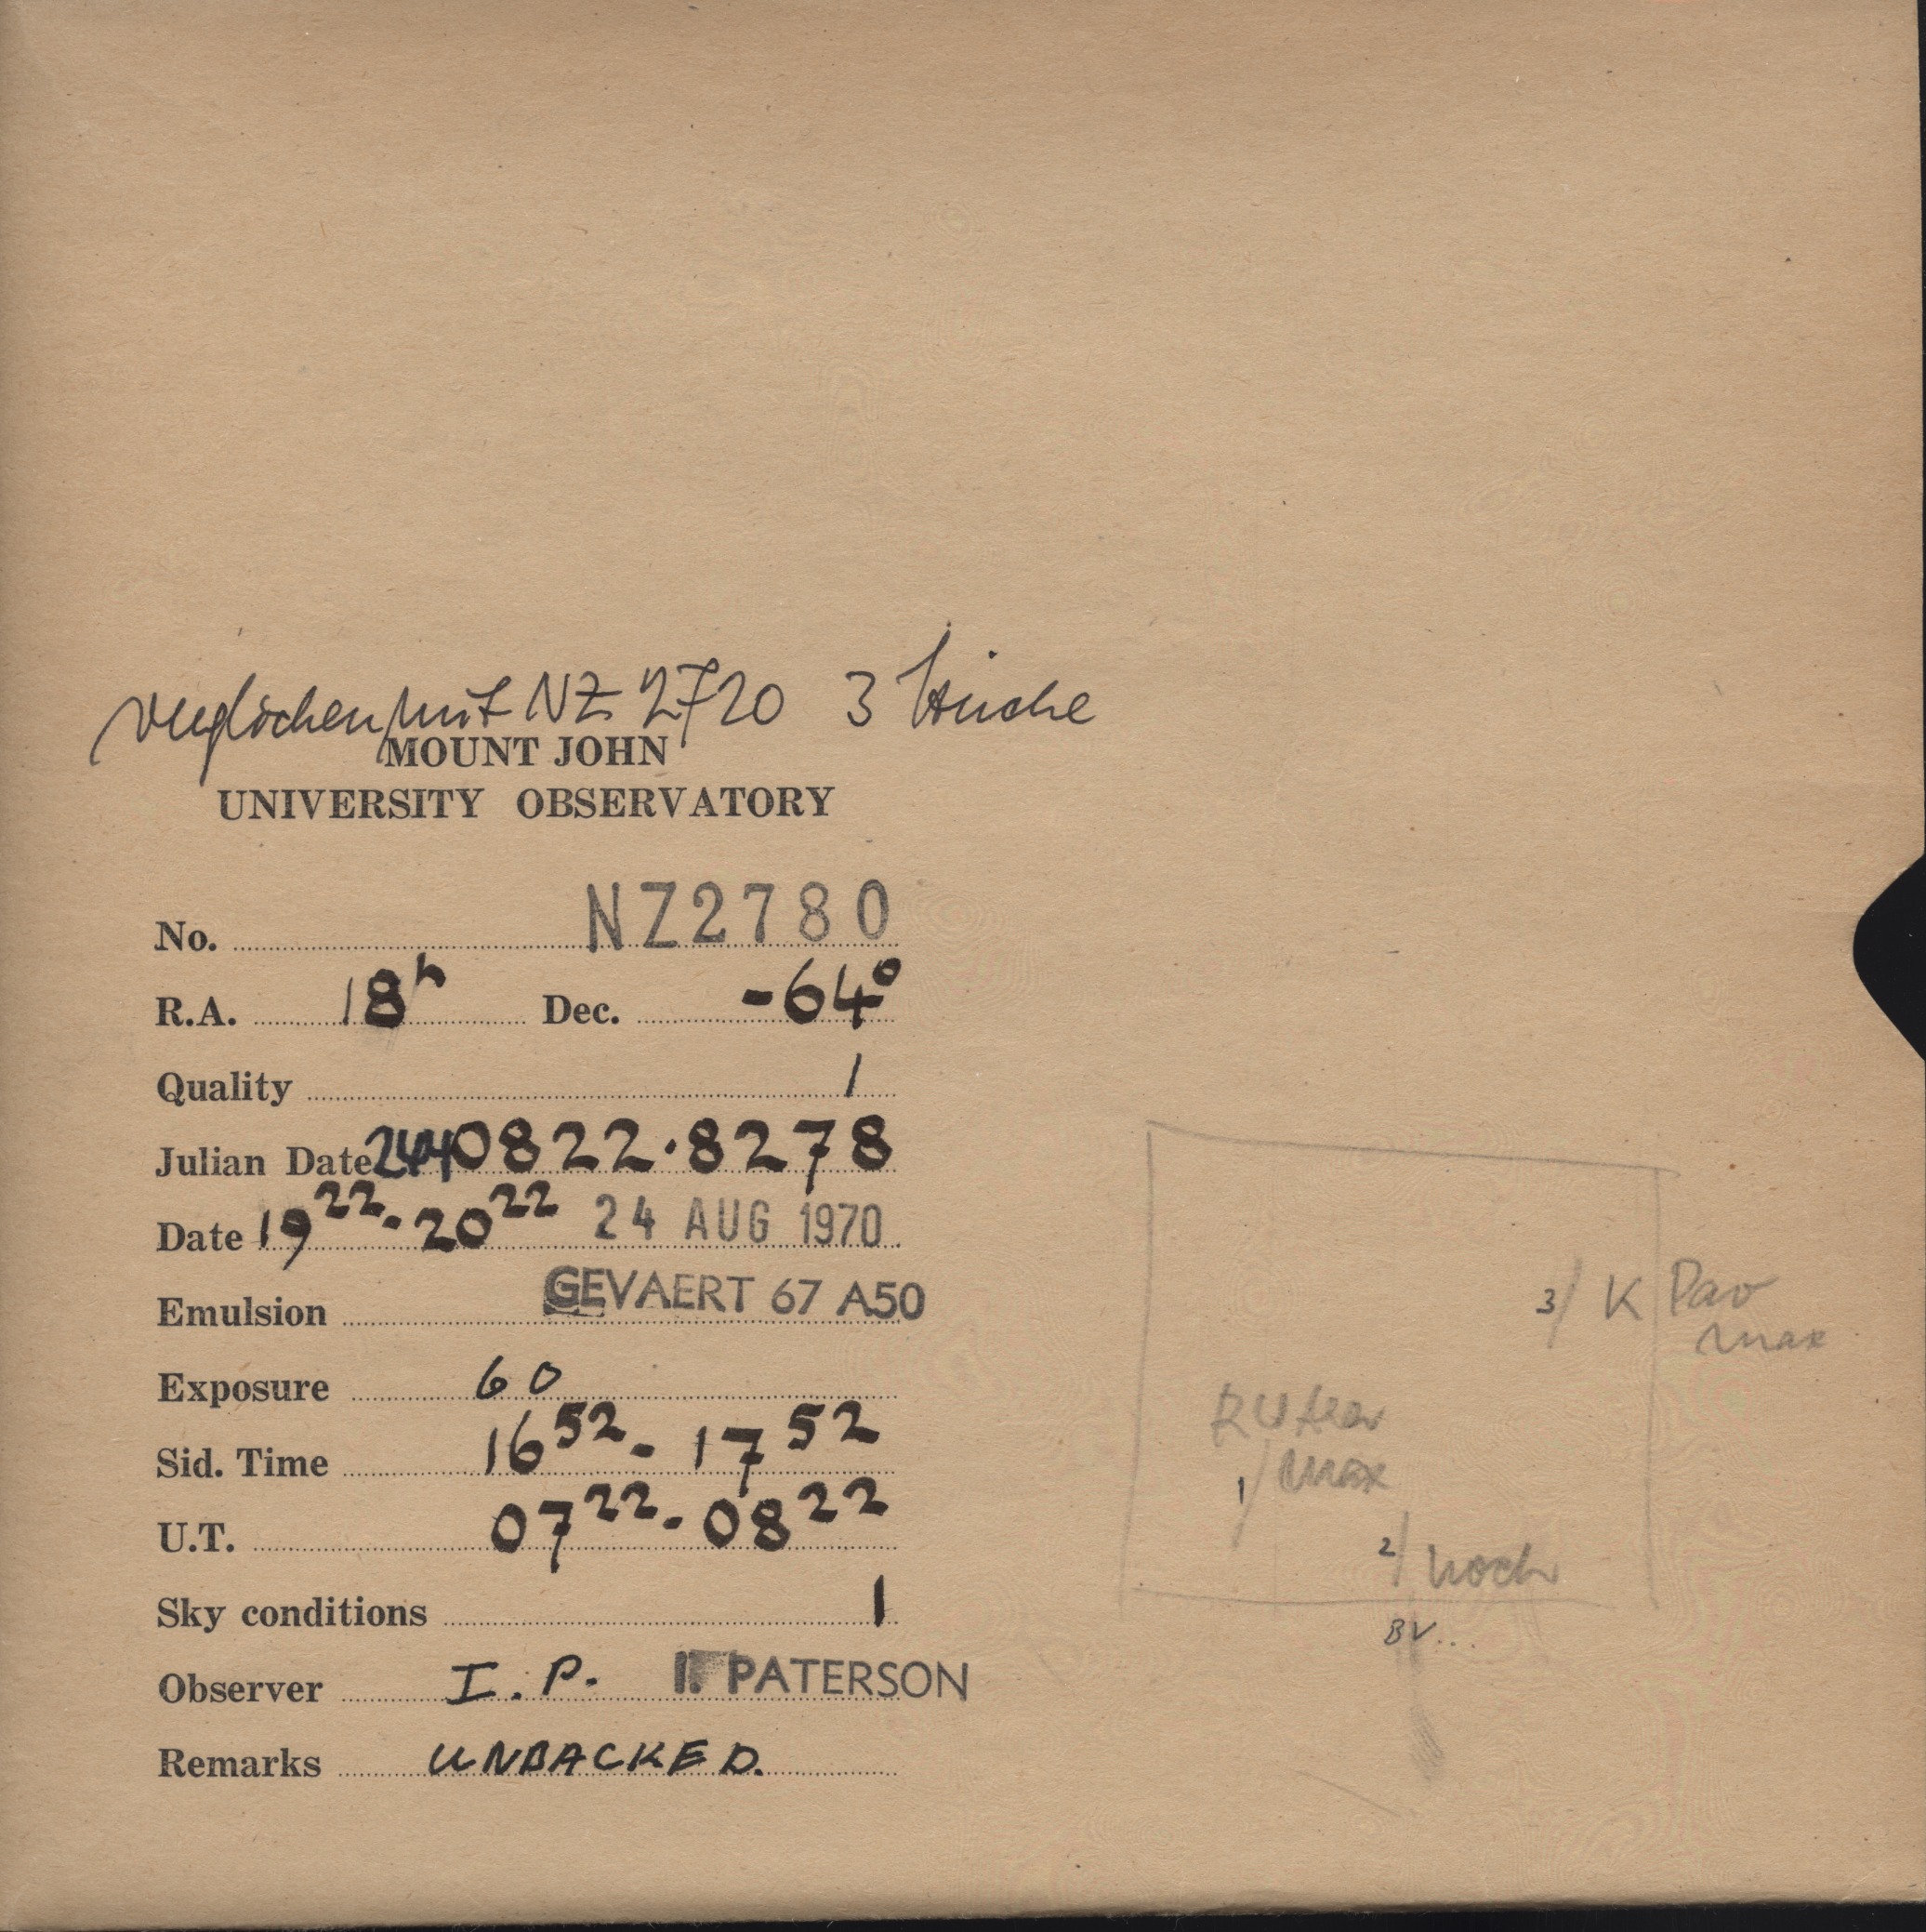 verglichen mit NZ 2720 3 Striche
MOUNT JOHN
UNIVERSITY OBSERVATORY
No. NZ2780
R.A. 18h Dec. -64°
Quality 1
Julian Date 2440822.8278
Date 19 22 - 20 22 24 AUG 1970
Emulsion GEVAERT 67 A50
Exposure 60
Sid. Time 16 52 - 17 52
U.T. 07 22 - 08 22
Sky conditions 1
Observer I.P. I. PATERSON
Remarks UNBACKED.
3/ K Pav
max
RU
1/ max
2/ noch
BV...